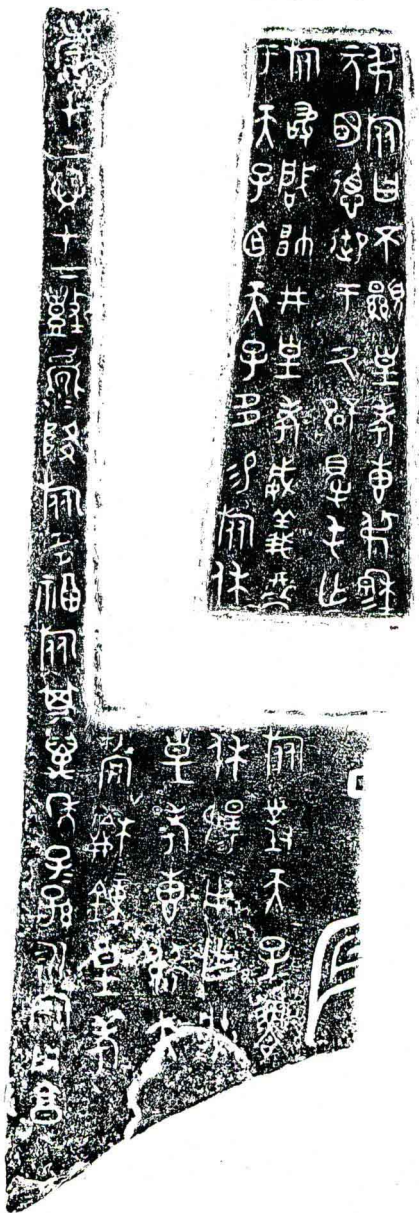 叔旅曰不顯皇考叀叔穆
元明德御于氒辟𢔶屯亡
旅敢肈帥井皇考威義
于天子卣天子多易旅休
旅對天子魯
休揚用乍朕
皇考叀叔大
龢鐘皇考
嚴才上異才下降旅多福旅其萬年子孫永寶用享